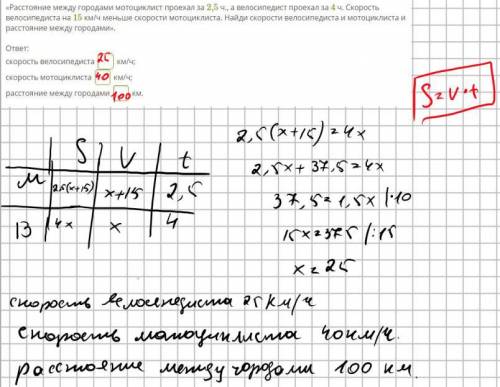 «Расстояние между городами мотоциклист проехал за 2,5 ч., а велосипедист проехал за 4 ч. Скорость
велосипедиста на 15 км/ч меньше скорости мотоциклиста. Найди скорости велосипедиста и мотоциклиста и
расстояние между городами».
Ответ:
скорость велосипедиста 25 км/ч;
скорость мотоциклиста 40 км/ч;
расстояние между городами 100 км.
S=V·t
S V t
М 2,5(x+15) x+15 2,5
В 4x x 4
2,5(x+15)=4x
2,5x+37,5=4x
37,5=1,5x |·10
15x=375 |:15
x=25
скорость велосипедиста 25 км/ч
скорость мотоциклиста 40 км/ч.
расстояние между городами 100 км.